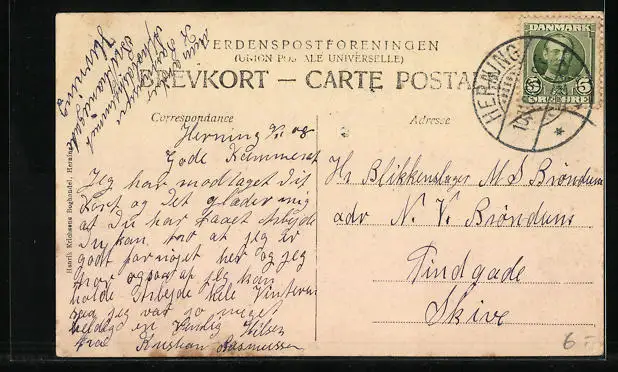 VERDENSPOSTFORENINGEN
(UNION POSTALE UNIVERSELLE)
BREVKORT — CARTE POSTALE
DANMARK
5 5
ØRE
HERNING
Correspondance
Adresse
Herning 08
Gode Kammerat
Jeg har modtaget Dit
Kort og Det glæder mig
at Du har faaet Arbejde
Du kan tro at jeg er
godt fornøjet her og jeg
tror ogsaa at jeg kan
holde Arbejde hele Vinteren
jeg var so meget
en Venlig Hilsen
fra Kristian Rasmussen
Min
Herning
Hr Blikkenslager M S Brøndum
adr N. V. Brøndum
Tindgade
Skive
Henrik Erichsens Boghandel, Herning
6